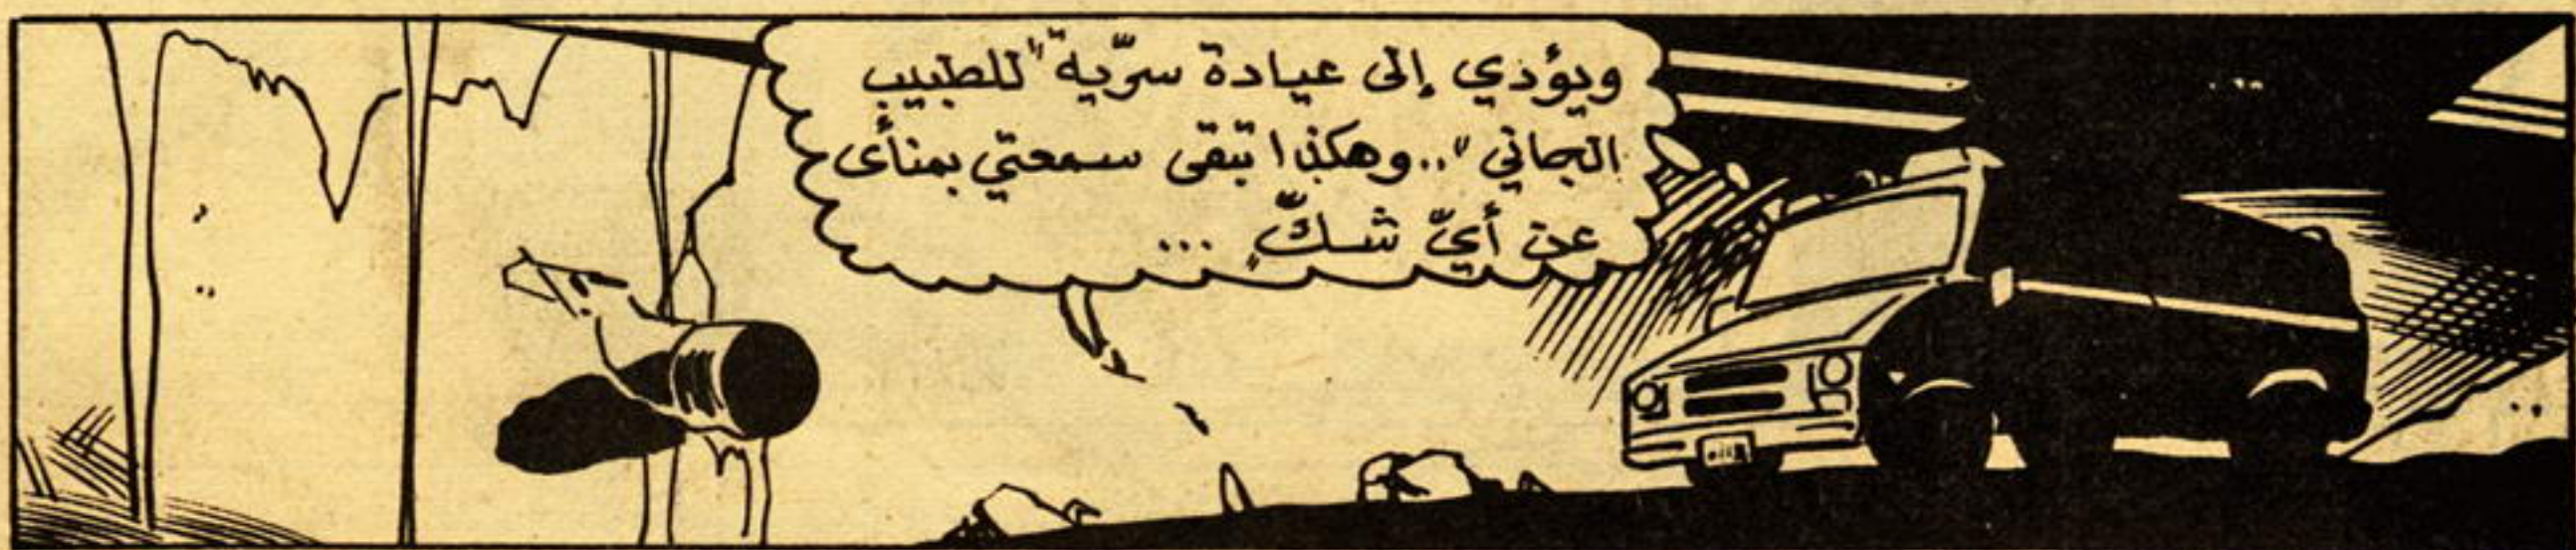 ويؤذي إلى عيادة سرّية "للطبيب
الجاني".. وهكذا تبقى سمعتي بمنأى
عن أيّ شكٍّ ...